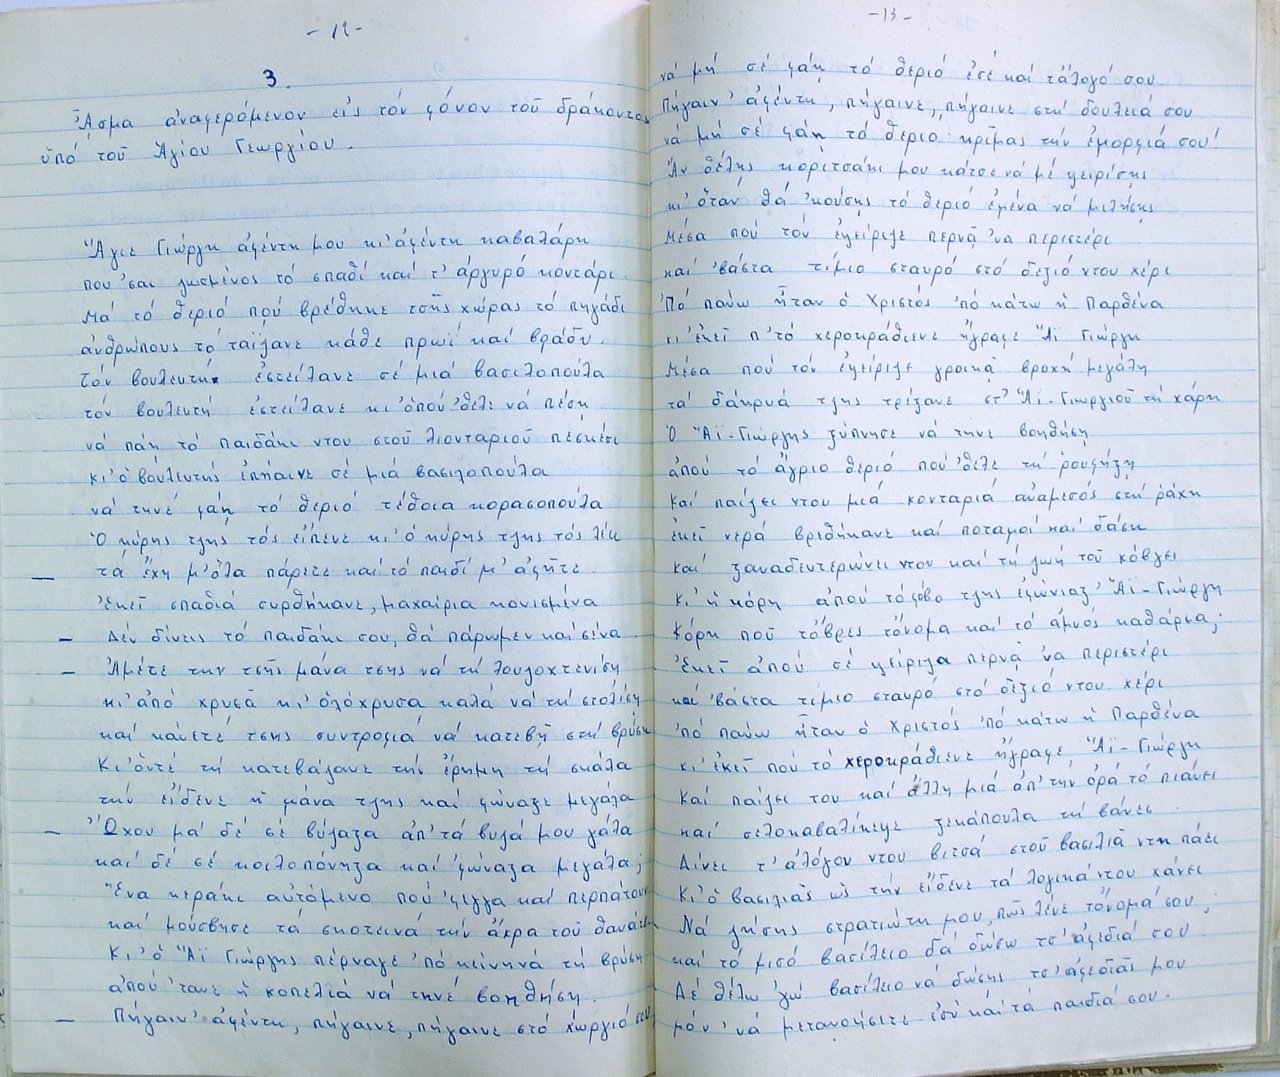 - 12 -
3.
Ἄσμα ἀναφερόμενον εἰς τόν φόνον τοῦ δράκοντος
ὑπό τοῦ Ἁγίου Γεωργίου.
Ἅγιε Γιώργη ἀφέντη μου κι' ἀφέντη καβαλάρη
που 'σαι ζωσμένος τό σπαθί καί τ' ἀργυρό κοντάρι
Μά τό θεριό πού βρέθηκε τσῆς χώρας τό πηγάδι
ἀνθρώπους τό ταΐζανε κάθε πρωΐ καί βράδυ.
Τόν βουλευτή ἐστείλανε σέ μιά βασιλοπούλα
τόν βουλευτή ἐστείλανε κι' ὁπού 'θελε νά πέση
νά πάη τό παιδάκι ντου στοῦ λιονταριοῦ πεσκέσι
κι' ὁ βουλευτής ἐπήαινε σέ μιά βασιλοπούλα
νά τηνέ φάη τό θεριό τέθοια κορασοπούλα
Ὁ κύρης τζης τός εἶπενε κι' ὁ κύρης τζης τός λέει
— τά ἔχη μ' ὅλα πάρετε καί τό παιδί μ' ἀφῆτε.
Ἐκεῖ σπαθιά συρθήκανε, μαχαίρια κονισμένα
— Δέν δίνεις τό παιδάκι σου, θά πάρωμεν καί σένα
— Ἀμέτε την τσῆ μάνα τσης νά τή λουλοχτενίση
κι' ἀπό χρυσά κι' ὁλόχρυσα καλά νά τή στολίση
καί κάνετέ τσης συντροφιά νά κατεβῆ στή βρύση
Κι' ὀντέ τή κατεβάζανε τήν ἔρημη τή σκάλα
τήν εἴδενε ἡ μάνα τζης καί φώναξε μεγάλα
— Ὤχου μά δέ σέ βύζαξα ἀπ' τά βυζά μου γάλα
καί δέ σέ κοιλοπόνηξα καί φώναξα μεγάλα;
Ἕνα κεράκι αὐτόμενο πού 'φεγγα καί περπάτουν
καί μοὔσβησε τά σκοτεινά τήν ἄκρα τοῦ θανάτου
Κι' ὁ Ἅϊ Γιώργης πέρναγε 'πό κείνηνά τή βρύση
ἁπού 'τανε ἡ κοπελιά νά τηνέ βοηθήση.
— Πήγαιν' ἀφέντη, πήγαινε, πήγαινε στό χωργιό σου
- 13 -
νά μή σέ φάη τό θεριό ἐσέ καί τἄλογό σου
Πήγαιν' ἀφέντη, πήγαινε, πήγαινε στή δουλειά σου
νά μή σέ φάη τό θεριό κρῖμας τήν ἐμορφιά σου!
Ἄν θέλης κοριτσάκι μου κάτσε νά μέ ψειρίσης
κι' ὅταν θά 'κούσης τό θεριό ἐμένα νά μιλήσης
Μέσα πού τόν ἐψείριζε περνᾷ 'να περιστέρι
καί 'βάστα τίμιο σταυρό στό δεξιό ντου χέρι
Ἀπό πάνω ἤταν ὁ Χριστός 'πό κάτω ἡ Παρθένα
κι' ἐκεῖ π' τό χεροκράθιενε ἤγραφε Ἅϊ Γιώργη
Μέσα πού τόν ἐψείριζε γροικᾷ βροχή μεγάλη
τά δάκρυά τζης τρέξανε στ' Ἅϊ-Γιωργιοῦ τή χάρη
Ὁ Ἅϊ-Γιώργης ξύπνησε νά τηνε βοηθήση
ἀπού τό ἄγριο θεριό πού 'θελε τή ρουφήξη
Καί παίζει ντου μιά κονταριά ἀνάμεσός στή ράχη
ἐκεῖ νερά βρεθήκανε καί ποταμοί καί δάση
Καί ξαναδευτερώνει ντου καί τή ζωή τοῦ κόβγει
Κι' ἡ κόρη ἀπού τό φόβο τζης ἐφώνιαξ' Ἅϊ-Γιώργη
Κόρη ποῦ τὄβρες τὄνομα καί τό ἀμνός καθάρια;
Ἐκεῖ ἁπού σέ ψείριζα περνᾷ 'να περιστέρι
καί 'βάστα τίμιο σταυρό στό δεξιό ντου χέρι
'πό πάνω ἤταν ὁ Χριστός 'πό κάτω ἡ Παρθένα
κι' ἐκεῖ πού τό χεροκράθιενε ἤγραφε Ἅϊ-Γιώργη
Καί παίζει του καί ἄλλη μιά ἀπ' τήν ὀρά τό πιάνει
καί σελοκαβαλίκεψε ξεκάπουλα τή βάνει
Δίνει τ' ἀλόγου ντου βιτσά στοῦ βασιλιᾶ ντη πάει
Κι' ὁ βασιλιᾶς ὡς τήν εἴδενε τά λογικά ντου χάνει
Νά ζήσης στρατιώτη μου, πῶς λένε τὄνομά σου,
καί τό μισό βασίλειο δά δώσω τσ' ἀφεδιά σου
Δέ θέλω 'γώ βασίλειο νά δώσης τσ' ἀφεδιᾶς μου
μόν' νά μετανοήσετε ἐσύ καί τά παιδιά σου.